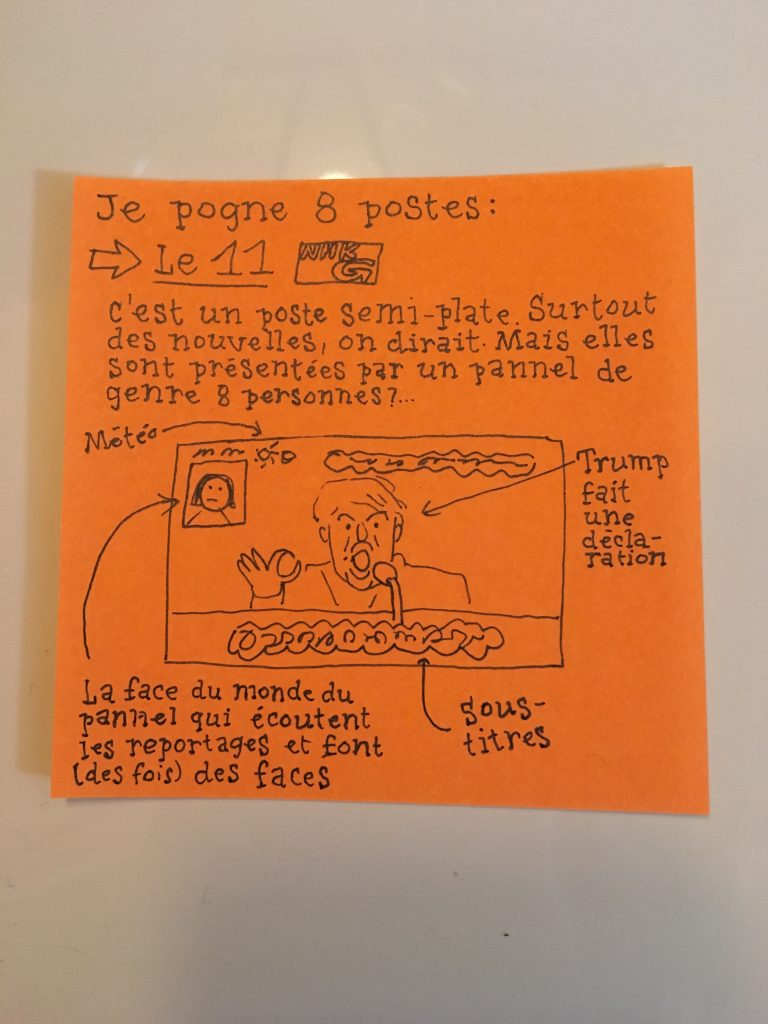 Je pogne 8 postes:
Le 11 NHK G
C'est un poste semi-plate. Surtout
des nouvelles, on dirait. Mais elles
sont présentées par un pannel de
genre 8 personnes?...
Météo
Trump
fait
une
décla-
ration
La face du monde du
pannel qui écoutent
les reportages et font
(des fois) des faces
Sous-
titres